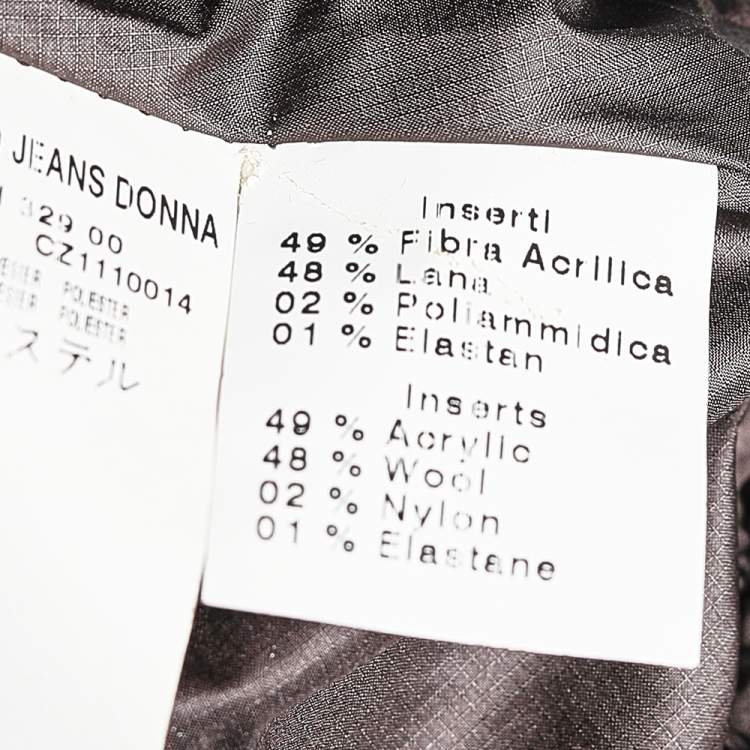 JEANS DONNA
329 00
CZ1110014
POLIESTER
POLYESTER
ステル
Inserti
49 % Fibra Acrilica
48 % Lana
02 % Poliammidica
01 % Elastan
Inserts
49 % Acrylic
48 % Wool
02 % Nylon
01 % Elastane